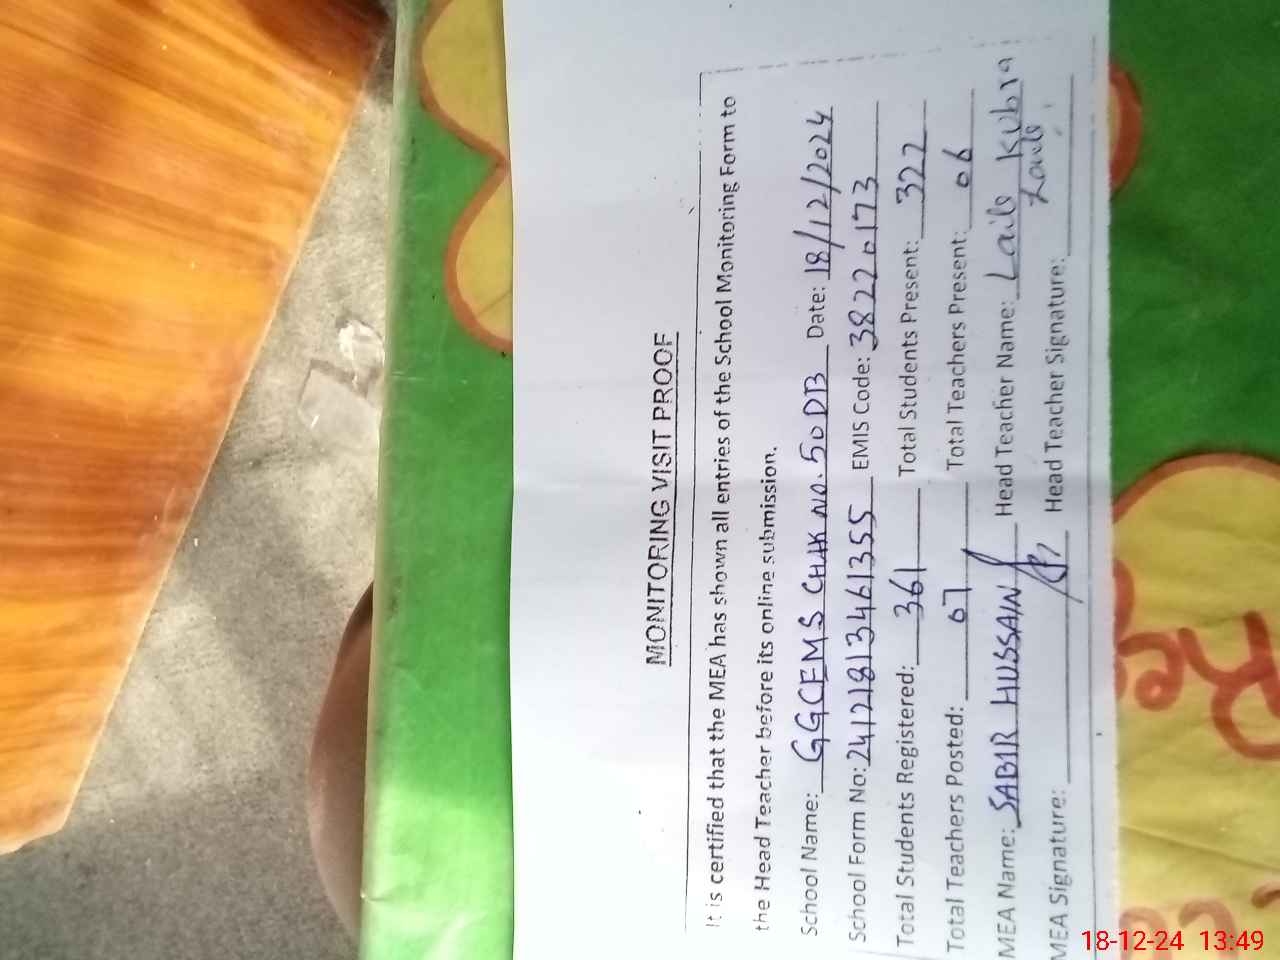 MONITORING VISIT PROOF
It is certified that the MEA has shown all entries of the School Monitoring Form to
the Head Teacher before its online submission.
School Name: GGCEMS CHAK NO. 50 DB Date: 18/12/2024
School Form No: 241218134661355 EMIS Code: 38220173
Total Students Registered: 361 Total Students Present: 322
Total Teachers Posted: 07 Total Teachers Present: 06
MEA Name: SABIR HUSSAIN Head Teacher Name: Laila Kubra
MEA Signature: Head Teacher Signature: Laila
Re
18-12-24 13:49